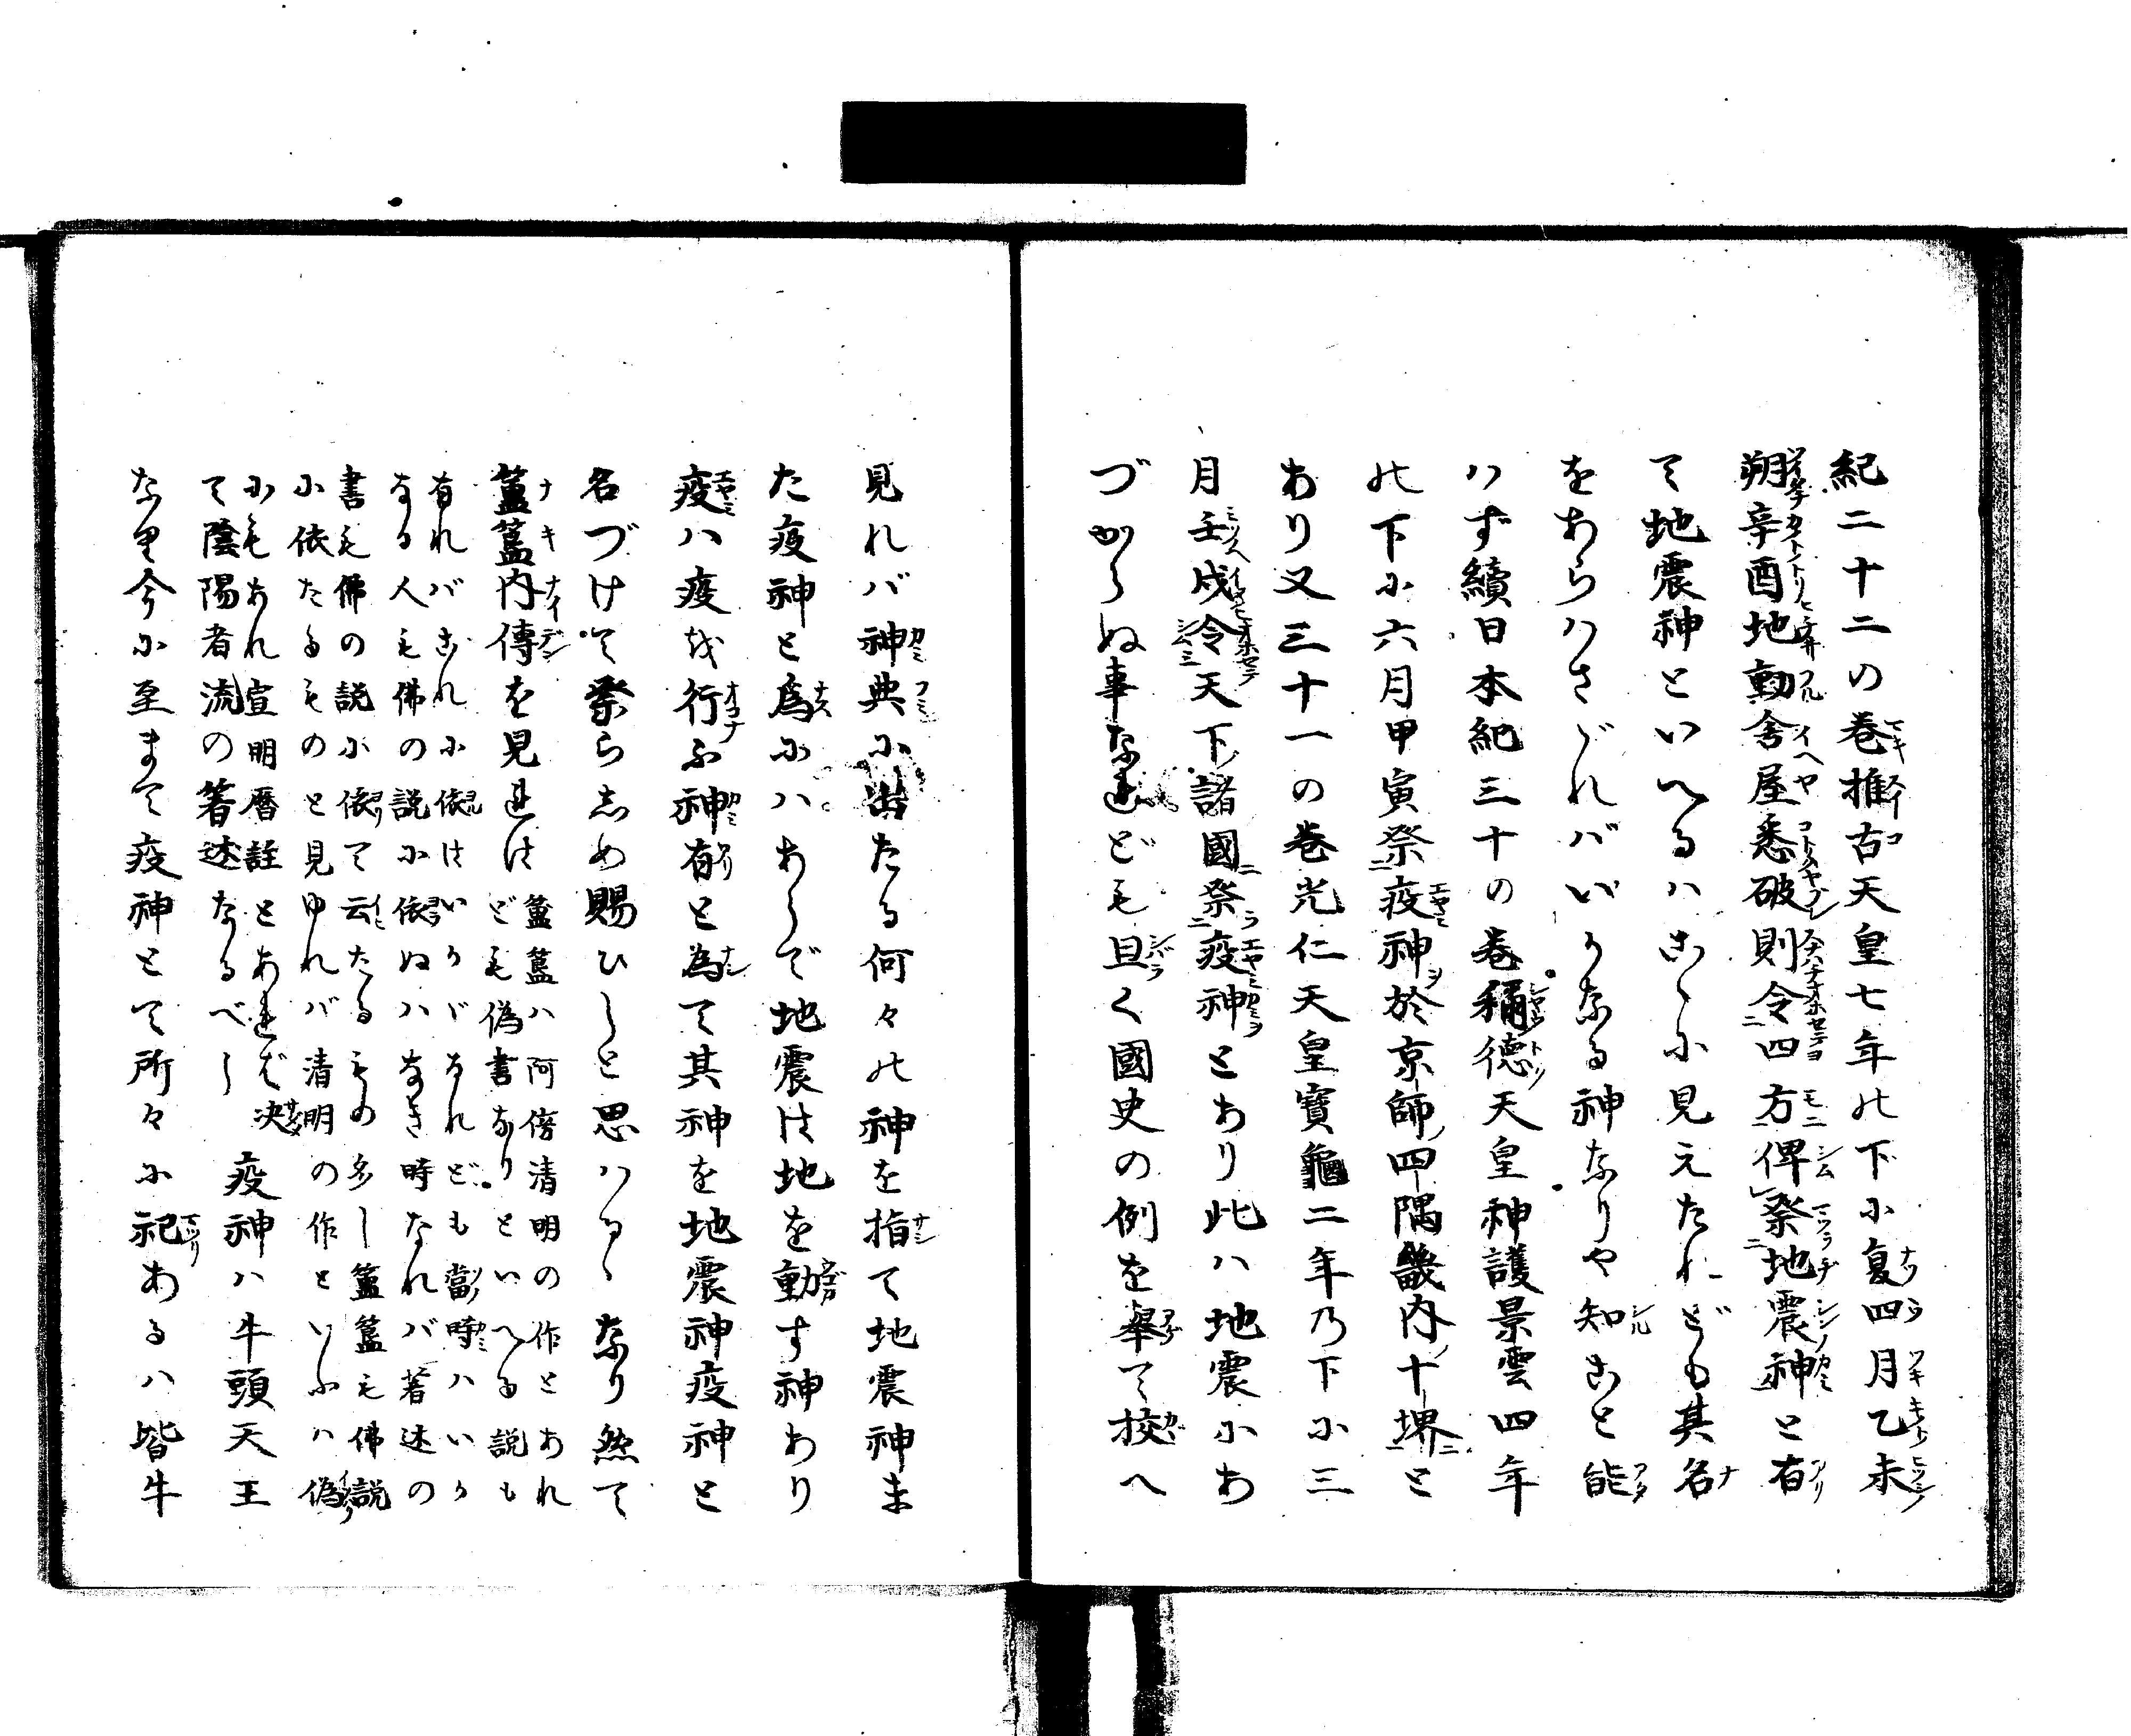 紀二十二の巻推古天皇七年の下に夏四月乙未
朔辛酉地動舎屋悉破則令四方俾祭地震神と有
て地震神といへるハこゝに見えたれども其名
をあらハさゞれバいかなる神なりや知こと能
ハず續日本紀三十の巻稱徳天皇神護景雲四年
の下に六月甲寅祭疫神於京師四隅畿内十堺と
あり又三十一の巻光仁天皇寶龜二年乃下に三
月壬戌令天下諸國祭疫神とあり此ハ地震にあ
づからぬ事なれども且く國史の例を舉て挍へ
見れバ神典に出たる何々の神を指て地震神ま
た疫神と為にハあらで地震は地を動す神あり
疫ハ疫を行ふ神有と為て其神を地震神疫神と
名づけて祭らしめ賜ひしと思ハるゝなり然て
簠簋内傳を見れは
簠簋ハ阿倍清明の作とあれ
ども偽書なりといへる説も
有れバこれに依はいかゞなれども當時ハいか
なる人も佛の説に依ぬハなき時なれバ著述の
書も佛の説に依て云たるもの多し簠簋も佛説
に依たるものと見ゆれバ清明の作といふハ偽
にもあれ宣明暦註とあれば决
て陰陽者流の著述なるべし
疫神ハ牛頭天王
なり今に至まて疫神とて所々に祀あるハ皆牛